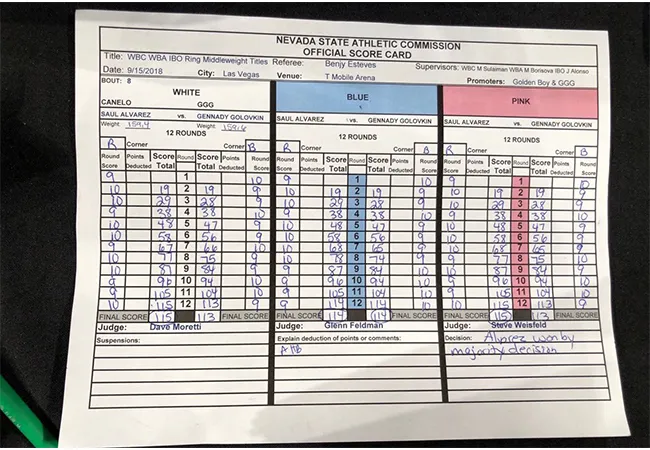 NEVADA STATE ATHLETIC COMMISSION
OFFICIAL SCORE CARD
Title: WBC WBA IBO Ring Middleweight Titles Referee: Benjy Esteves Supervisors: WBC M Sulaiman WBA M Borisova IBO J Alonso
Date: 9/15/2018 City: Las Vegas Venue: T Mobile Arena Promoters: Golden Boy & GGG
BOUT: 8
WHITE BLUE PINK
CANELO GGG
SAUL ALVAREZ vs. GENNADY GOLOVKIN SAUL ALVAREZ vs. GENNADY GOLOVKIN SAUL ALVAREZ vs. GENNADY GOLOVKIN
Weight 159.4 Weight 159.6
12 ROUNDS 12 ROUNDS 12 ROUNDS
R Corner Corner B R Corner Corner B R Corner Corner B
Round Points Score Round Score Points Round Round Points Score Round Score Points Round Round Points Score Round Score Points Round
Score Deducted Total Total Deducted Score Score Deducted Total Total Deducted Score Score Deducted Total Total Deducted Score
9 1 10 9 1 10 9 1 10
10 19 2 19 9 10 19 2 19 9 10 19 2 19 9
10 29 3 28 9 10 29 3 28 9 10 29 3 28 9
9 38 4 38 10 9 38 4 38 10 9 38 4 38 10
10 48 5 47 9 10 48 5 47 9 10 48 5 47 9
10 58 6 56 9 10 58 6 56 9 10 58 6 56 9
9 67 7 66 10 10 68 7 65 9 10 68 7 65 9
10 77 8 75 9 10 78 8 74 9 9 77 8 75 10
10 87 9 84 9 9 87 9 84 10 10 87 9 84 9
9 96 10 94 10 9 96 10 94 10 9 96 10 94 10
9 105 11 104 10 9 105 11 104 10 9 105 11 104 10
10 115 12 113 9 9 114 12 114 10 10 115 12 113 9
FINAL SCORE 115 113 FINAL SCORE FINAL SCORE 114 114 FINAL SCORE FINAL SCORE 115 113 FINAL SCORE
Judge: Dave Moretti Judge: Glenn Feldman Judge: Steve Weisfeld
Suspensions: Explain deduction of points or comments: Decision: Alvarez won by
majority decision